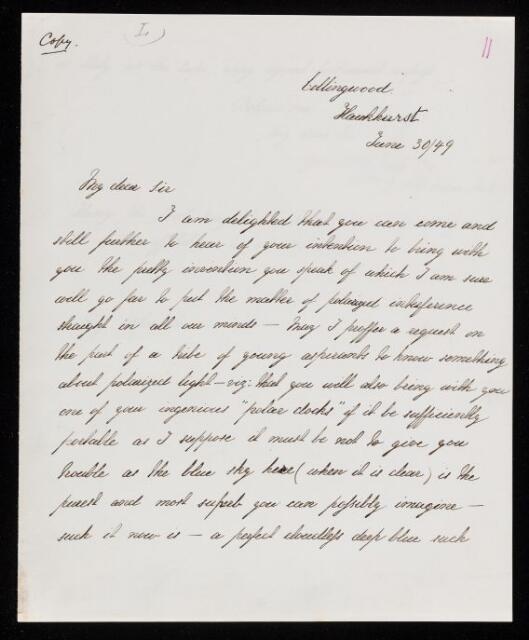 Copy.
(I.)
11
Collingwood
Hawkhurst
June 30/49
My dear Sir
I am delighted that you can come and
still further to hear of your intention to bring with
you the pretty invention you speak of which I am sure
will go far to put the matter of polarized interference
straight in all our minds — May I proffer a request on
the part of a tribe of young aspirants to know something
about polarized light — viz: that you will also bring with you
one of your ingenious "polar clocks" if it be sufficiently
portable as I suppose it must be not to give you
trouble as the blue sky here (when it is clear) is the
purest and most superb you can possibly imagine —
such it now is — a perfect cloudless deep blue such